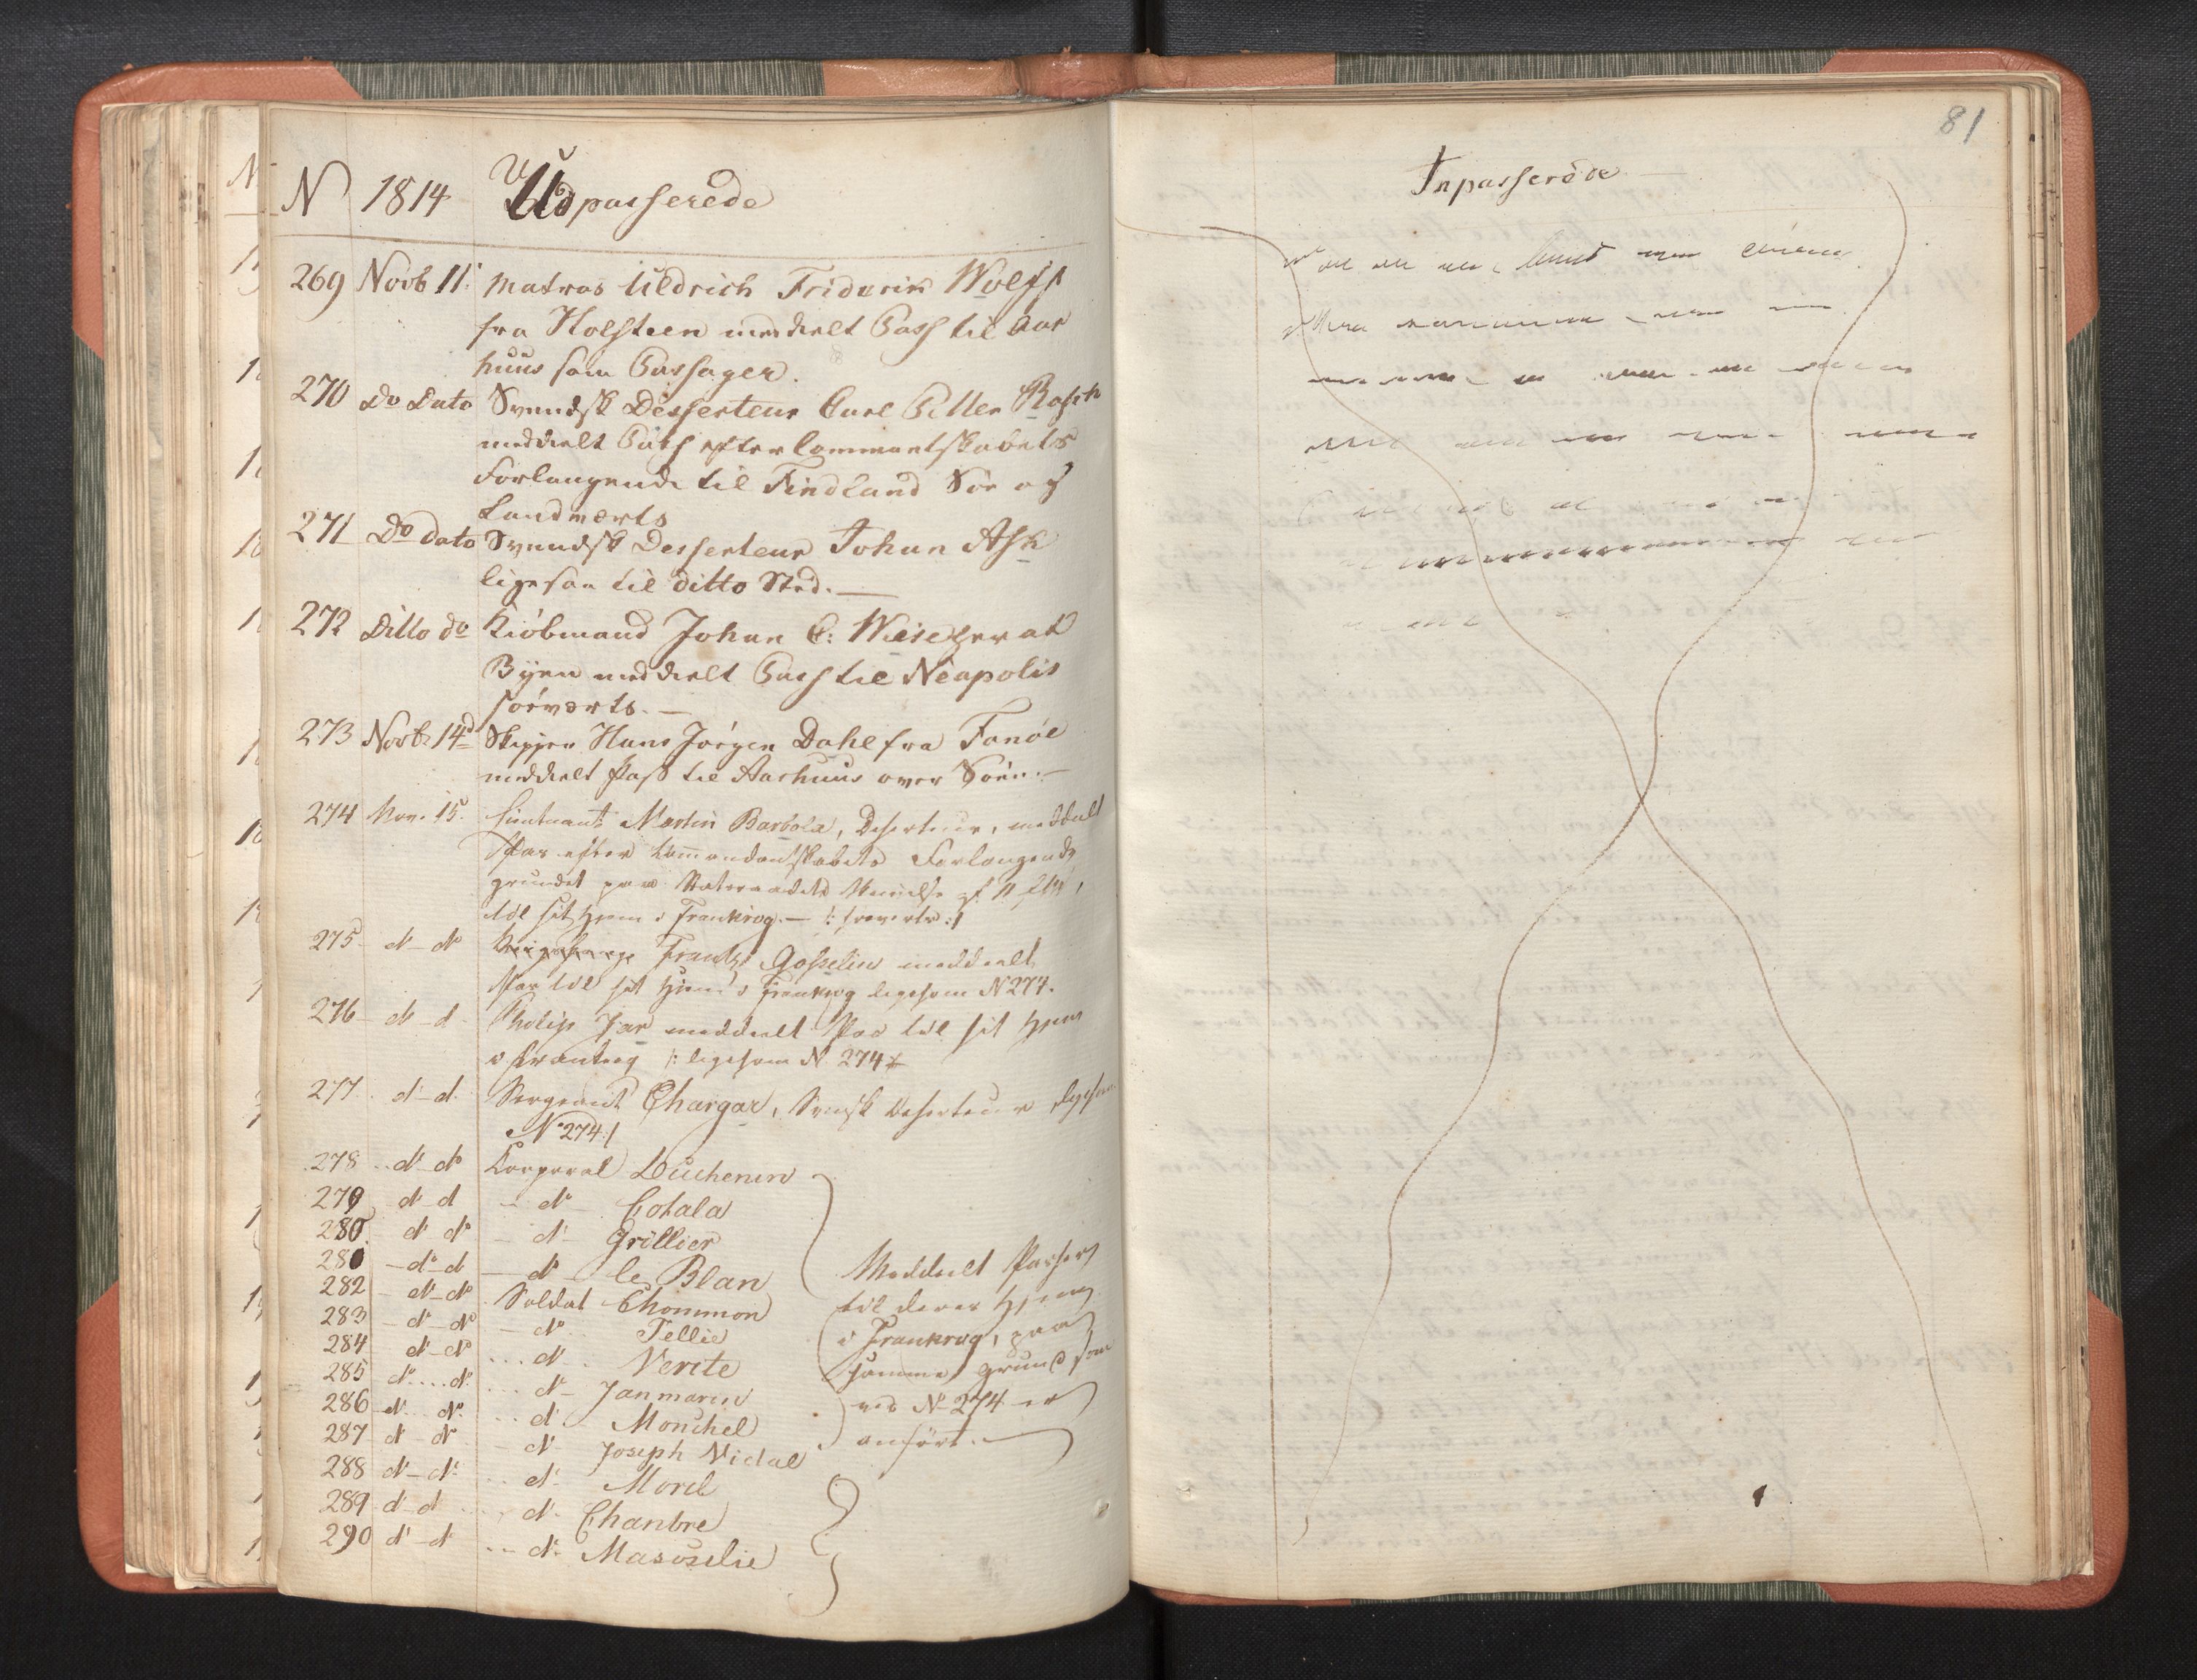 N 1814 Udpasserede
269 Novb 11: Matros Uldrich Friderik Wolff
fra Holsteen meddelt Pass til Aar
huus som Passager.
270 Do Dato Svendsk Desserteur Carl Petter Rasck
meddelt Pass efter Commantskabets
Forlangende til Findland Søe og
Landverts
271 Do dato Svendsk Desserteur Johan Ask
ligesaa til ditto Sted. —
272 Ditto do Kiöbmand Johan C: Wiese her af
Byen meddelt Pass til Neapolis
søeverts. —
273 Novb 14d Skipper Hans Jörgen Dahl fra Fanöe
meddelt Pass til Aarhuus over Søen. —
274 Nov. 15. Lieutnant Martin Barbola, Deserteur, meddelt
Pas efter Commandantskabets Forlangende
grundet paa
til sit Hjem i Frankrig. — /: søeverts :/
275 do do Frantz Gosselin meddeelt
Pas til sit Hjem i Frankrig ligesom N 274.
276 do d Philip Jar meddeelt Pas til sit Hjem
i Frankrig /: ligesom N. 274
277. d. d. Sergeant Chargar, Svensk Deserteur ligesom
N. 274 :/
278 do do Corporal Duchenin
279 d d do Cotala
280. d do d. Grillier
281 do d do le Blan
282 do do Soldat Chommon
283 d do do Tellie
284 do do d. Verite
285 do d. do Janmarin
286 d. do. d. Monchel
287 d do do Joseph Vidal
288 do do d. Morel
289 d d d. Chanbre
290 d d d. Masouelie
Meddeelt Passer
til deres Hjem
i Frankrig, paa
samme Grund som
ved No 274 er
anført. —
81
Inpasserede —